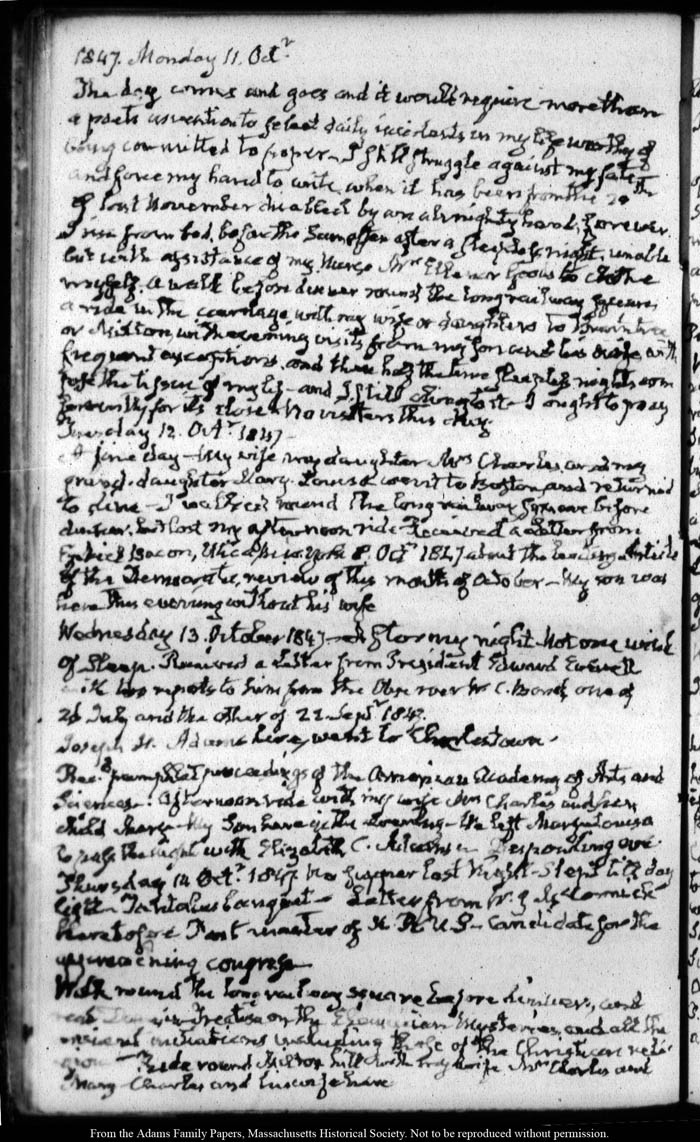 1847. Monday 11. Octr
The day comes and goes and it would require more than
a poets invention to select daily incidents in my life worthy of
being committed to paper – I still struggle against my fate
and force my hand to write when it has been from the 20th
of last November disabled by an almighty hand, forever.
I rise from bed before the Sun often after a sleepless night, unable
but with assistance of my Nurse Mrs to clothe
myself. a walk before dinner round the long railway square,
a ride in the carriage with my wife or daughters to Braintree
or Milton, with evening visits from my son and his wife with
frequent exceptions, and these
the tissue of my life – and I still cling to it – I ought to pray
for its close. No visitors this day.
Tuesday 12. Octr 1847 –
A fine day – My wife my daughter Mrs Charles, and my
grand-daughter Mary Louisa went to Boston and returned
to dine – I walked round the long railway square before
dinner, but lost my afternoon ride – Received a Letter from
Bacon, Utica New York 8. Octr 1847 about the leading Article
of the Democratic review of this month of October – My son was
here this evening without his wife
Wednesday 13. October 1847 – A Stormy night – Not one wink
of Sleep. Received a Letter from President Edward Everett
with two reports to him from the Observer W. C. Bond, one of
26 July and the other of 22 Septr 1847.
Joseph H. Adams here, went to Charlestown.
Recd pamphlet proceedings of the American Academy of Arts and
Sciences. Afternoon ride with my wife Mrs Charles and her
child Mary – My Son here in the Evening – We left Mary Louisa
to pass the night with Elizabeth C. Adams –
Thursday 14 Octr 1847 No supper last Night – Slept till day
light – Tantalus banquet – Letter from McCormick
heretofore Post master of H. R. U.S – Candidate for the
approaching congress
Walk round the long railway square before dinner, and
Treatise on the Eleusinian Mysteries, and all the
ancient initiations including those of the Christian reli-
Ride round Milton hill with my wife Mrs Charles and
Mary – Charles and his wife here
From the Adams Family Papers, Massachusetts Historical Society. Not to be reproduced without permission.